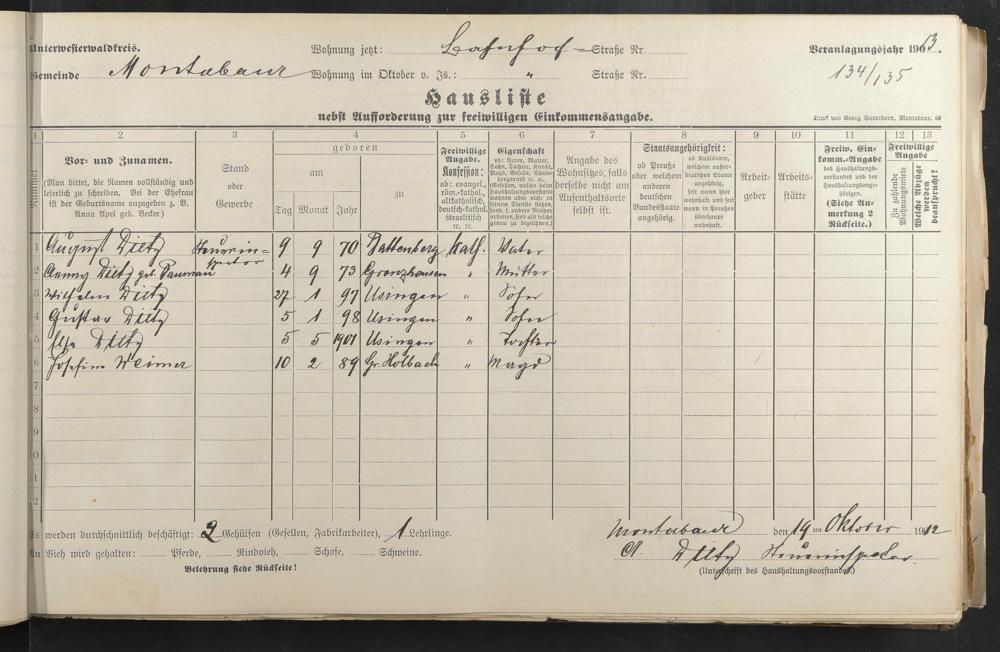 Unterwesterwaldkreis. Wohnung jetzt: Bahnhof = Straße Nr. Veranlagungsjahr 1913.
Gemeinde Montabaur Wohnung im Oktober v. Js.: " Straße Nr. 134/135
Hausliste
nebst Aufforderung zur freiwilligen Einkommensangabe.
Druck von Georg Sauerborn, Montabaur.
1 2 3 4 5 6 7 8 9 10 11 12 13
Nummer
Vor- und Zunamen.
(Man bittet, die Namen vollständig und
leserlich zu schreiben. Bei der Ehefrau
ist der Geburtsname anzugeben z. B.
Anna Apel geb. Becker)
Stand
oder
Gewerbe
geboren
am
zu
Tag Monat Jahr
Freiwillige
Angabe.
Konfession:
ob: evangel.,
röm.-kathol.,
altkatholisch,
deutsch-kathol.
israelitisch
ec. ec.
Eigenschaft
ob: Vater, Mutter,
Sohn, Tochter, Knecht,
Magd, Geselle,
Angabe des
Wohnsitzes, falls
derselbe nicht am
Aufenthaltsorte
selbst ist.
Staatsangehörigkeit:
ob Preuße
oder welchem
anderen
deutschen
Bundesstaate
angehörig.
ob Ausländer,
welchem außer-
deutschen Staate
angehörig,
seit wann hier
wohnhaft und seit
wann in Preußen
überhaupt
wohnhaft.
Arbeit-
geber
Arbeits-
stätte
Freiw. Ein-
komm.-Angabe
des Haushaltungs-
vorstandes und der
Haushaltungsange-
hörigen.
(Siehe An-
merkung 2
Rückseite.)
Freiwillige
Angabe
Zu zahlende
Wohnungsmiete
Welche Abzüge
werden
beansprucht?
1 August Dietz Steuerin= 9 9 70 Battenberg Kath. Vater
spektor
2 Anny Dietz geb. 4 9 73 " Mutter
3 Wilhelm Dietz 27 1 97 Usingen " Sohn
4 Gustav Dietz 5 1 98 Usingen " Sohn
5 Else Dietz 5 5 1901 Usingen " Tochter
6 Josefine Weimer 10 2 89 Gr. Holbach " Magd
7
8
9
10
11
12
Es werden durchschnittlich beschäftigt: 2 Gehülfen (Gesellen, Fabrikarbeiter), 1 Lehrlinge.
An Vieh wird gehalten: Pferde, Rindvieh, Schafe, Schweine.
Belehrung siehe Rückseite!
Montabaur den 19 ten Oktober 1912
A. Dietz Steuerinspektor.
(Unterschrift des Haushaltungsvorstandes.)